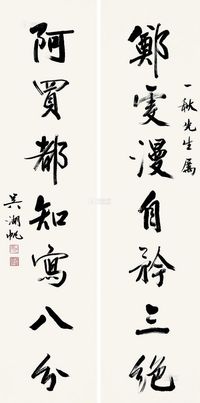 一秋先生属
鄭虔漫自矜三絶
阿買都知寫八分
吳湖帆